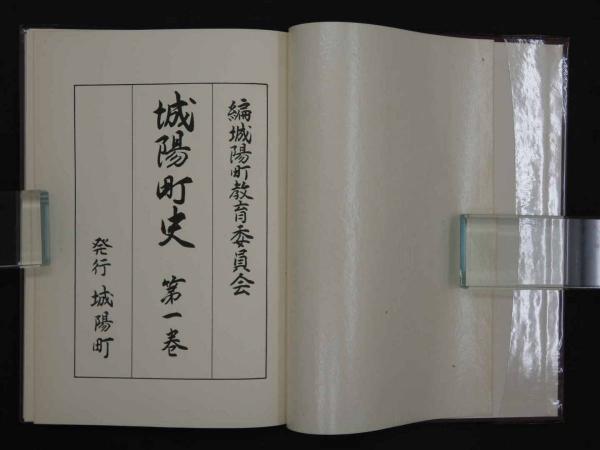 編城陽町教育委員会
城陽町史 第一巻
発行 城陽町